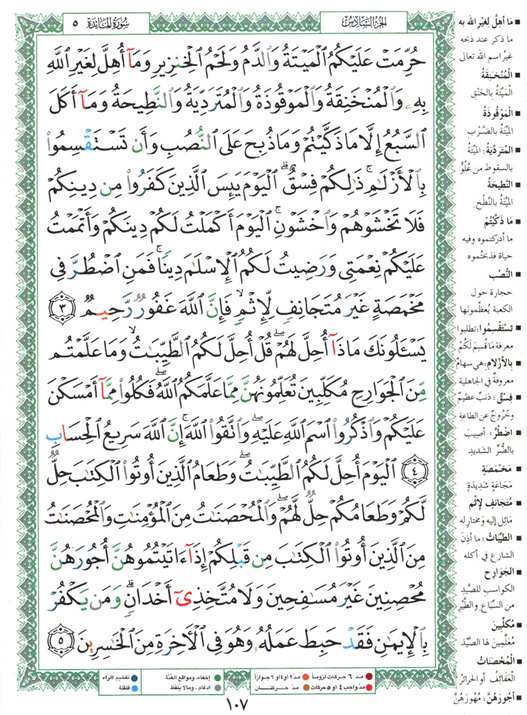 سُورَةُ المَائِدَةِ ٥
الجزء السادس
حُرِّمَتْ عَلَيْكُمُ ٱلْمَيْتَةُ وَٱلدَّمُ وَلَحْمُ ٱلْخِنزِيرِ وَمَآ أُهِلَّ لِغَيْرِ ٱللَّهِ
بِهِۦ وَٱلْمُنْخَنِقَةُ وَٱلْمَوْقُوذَةُ وَٱلْمُتَرَدِّيَةُ وَٱلنَّطِيحَةُ وَمَآ أَكَلَ
ٱلسَّبُعُ إِلَّا مَا ذَكَّيْتُمْ وَمَا ذُبِحَ عَلَى ٱلنُّصُبِ وَأَن تَسْتَقْسِمُوا۟
بِٱلْأَزْلَـٰمِ ۚ ذَٰلِكُمْ فِسْقٌ ۗ ٱلْيَوْمَ يَئِسَ ٱلَّذِينَ كَفَرُوا۟ مِن دِينِكُمْ
فَلَا تَخْشَوْهُمْ وَٱخْشَوْنِ ۚ ٱلْيَوْمَ أَكْمَلْتُ لَكُمْ دِينَكُمْ وَأَتْمَمْتُ
عَلَيْكُمْ نِعْمَتِى وَرَضِيتُ لَكُمُ ٱلْإِسْلَـٰمَ دِينًا ۚ فَمَنِ ٱضْطُرَّ فِى
مَخْمَصَةٍ غَيْرَ مُتَجَانِفٍ لِّإِثْمٍ ۙ فَإِنَّ ٱللَّهَ غَفُورٌ رَّحِيمٌ ٣
يَسْـَٔلُونَكَ مَاذَآ أُحِلَّ لَهُمْ ۖ قُلْ أُحِلَّ لَكُمُ ٱلطَّيِّبَـٰتُ ۙ وَمَا عَلَّمْتُم
مِّنَ ٱلْجَوَارِحِ مُكَلِّبِينَ تُعَلِّمُونَهُنَّ مِمَّا عَلَّمَكُمُ ٱللَّهُ ۖ فَكُلُوا۟ مِمَّآ أَمْسَكْنَ
عَلَيْكُمْ وَٱذْكُرُوا۟ ٱسْمَ ٱللَّهِ عَلَيْهِ ۖ وَٱتَّقُوا۟ ٱللَّهَ ۚ إِنَّ ٱللَّهَ سَرِيعُ ٱلْحِسَابِ
٤ ٱلْيَوْمَ أُحِلَّ لَكُمُ ٱلطَّيِّبَـٰتُ ۖ وَطَعَامُ ٱلَّذِينَ أُوتُوا۟ ٱلْكِتَـٰبَ حِلٌّ
لَّكُمْ وَطَعَامُكُمْ حِلٌّ لَّهُمْ ۖ وَٱلْمُحْصَنَـٰتُ مِنَ ٱلْمُؤْمِنَـٰتِ وَٱلْمُحْصَنَـٰتُ
مِنَ ٱلَّذِينَ أُوتُوا۟ ٱلْكِتَـٰبَ مِن قَبْلِكُمْ إِذَآ ءَاتَيْتُمُوهُنَّ أُجُورَهُنَّ
مُحْصِنِينَ غَيْرَ مُسَـٰفِحِينَ وَلَا مُتَّخِذِىٓ أَخْدَانٍ ۗ وَمَن يَكْفُرْ
بِٱلْإِيمَـٰنِ فَقَدْ حَبِطَ عَمَلُهُۥ وَهُوَ فِى ٱلْـَٔاخِرَةِ مِنَ ٱلْخَـٰسِرِينَ ٥
مَا أُهِلَّ لِغَيْرِ الله به
ما ذكر عند ذبحه
غير اسم الله تعالى
المُنْخَنِقَةُ
الميتة بالخنق
المَوْقُوذَةُ
الميتة بالضرب
المُتَرَدِّيَةُ : الميتة
بالسقوط من علو
النَّطِيحَةُ
الميتة بالنطح
مَا ذَكَّيْتُمْ
ما أدركتموه وفيه
حياة فذبحتموه
النُّصُبِ
حجارة حول
الكعبة يعظمونها
تَسْتَقْسِمُوا : تطلبوا
معرفة ما قسم لكم
بِالأَزْلَامِ : هي سهام
معروفة في الجاهلية
فِسْقٌ : ذنب عظيم
وخروج عن الطاعة
اضْطُرَّ : أصيب
بالضر الشديد
مَخْمَصَةٍ
مجاعة شديدة
مُتَجَانِفٍ لِإِثْمٍ
مائل إليه ومختار له
الطَّيِّبَاتُ : ما أذن
الشارع في أكله
الجَوَارِحِ
الكواسب للصيد
من السباع والطير
مُكَلِّبِينَ
معلمين لها الصيد
المُحْصَنَاتُ
العفائف أو الحرائر
أُجُورَهُنَّ : مهورهن
مدّ ٦ حركات لزوماً
مدّ ٢ أو ٤ أو ٦ جوازاً
إخفاء، ومواقع الغنّة
تفخيم الراء
مدّ واجب ٤ أو ٥ حركات
مدّ حركتان
ادغام، وما لا يلفظ
قلقلة
١٠٧